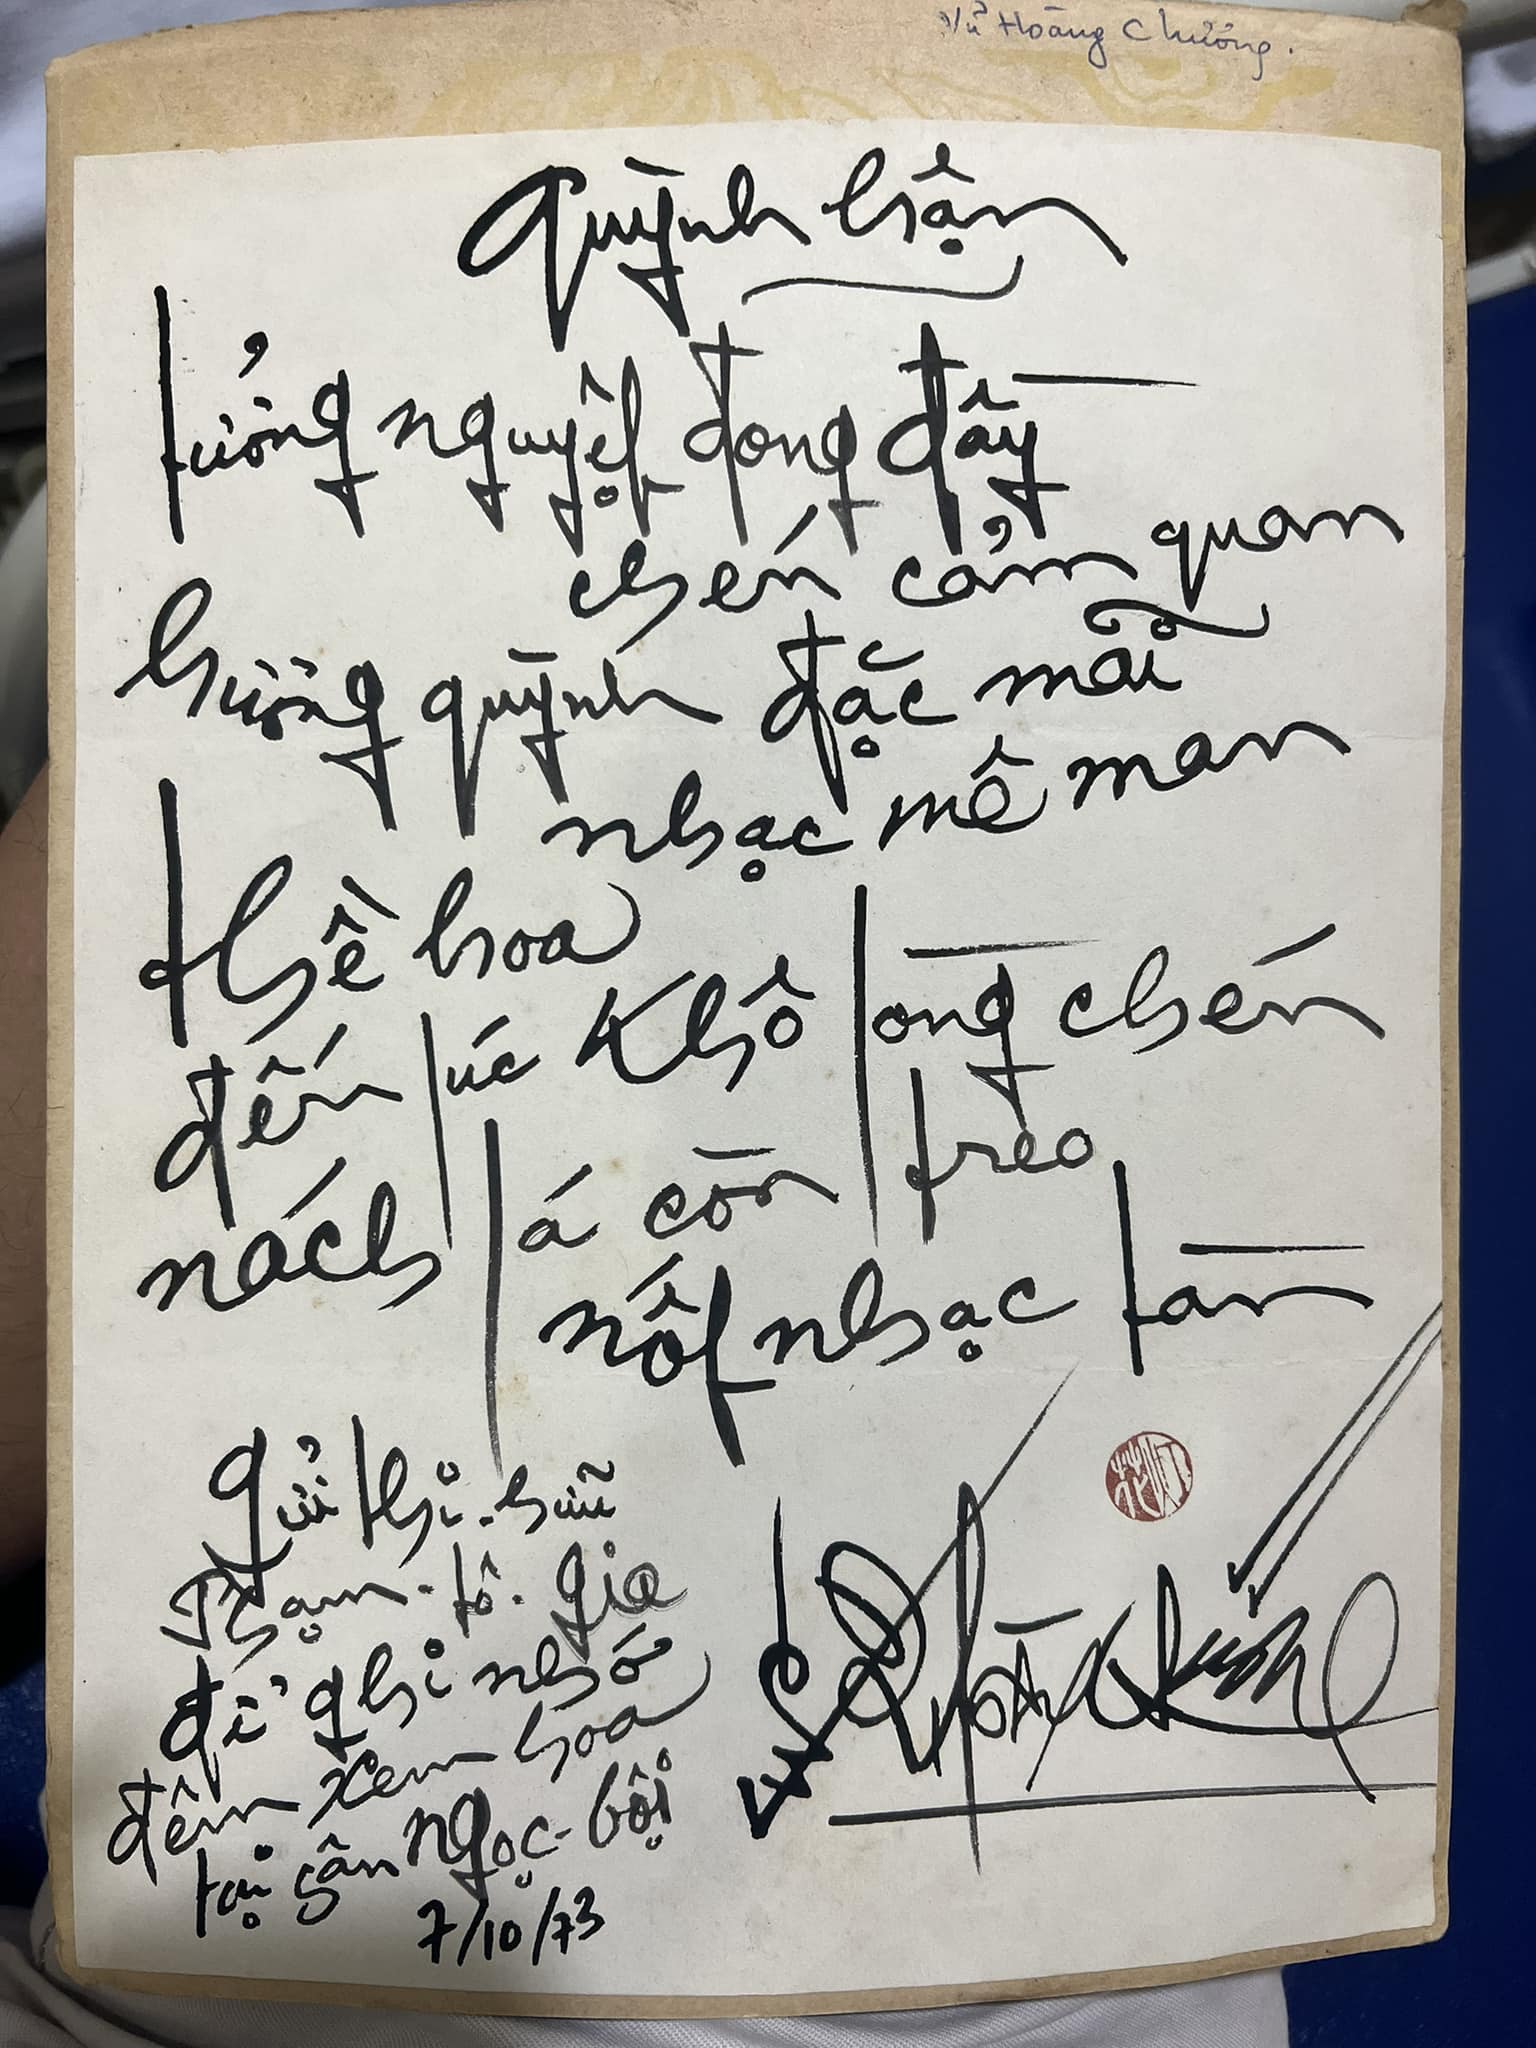 Vũ Hoàng Chương.
Quỳnh hận
tưởng nguyệt đong đầy
chén cảm quan
hương quỳnh đặc mãi
nhạc mê man
thề hoa
đến lúc khô lòng chén
nách lá còn treo
nốt nhạc tàn
gửi thi-hữu
Phạm-tô-gia
để ghi nhớ
đêm xem hoa
tại sân Ngọc-bội
7/10/73
Vũ Hoàng Chương